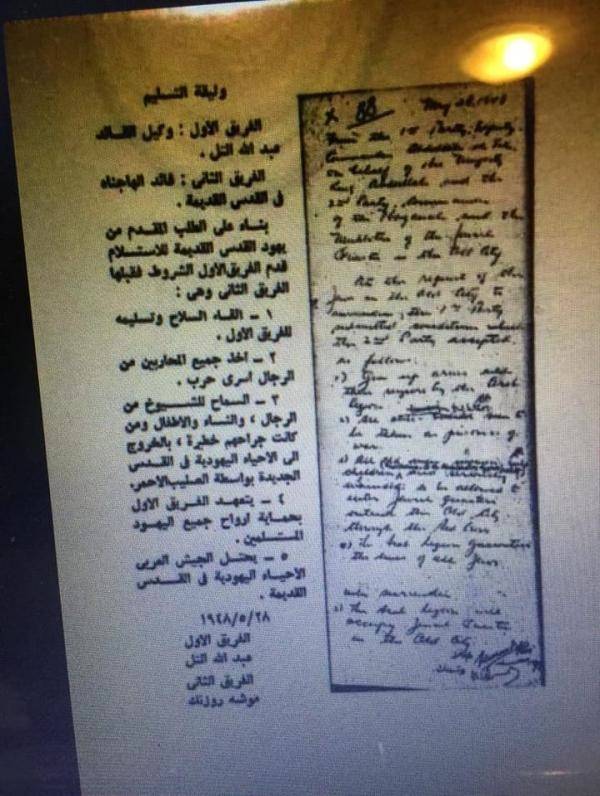 وثيقة التسليم
الفريق الأول : وكيل القائد
عبد الله التل .
الفريق الثاني : قائد الهاجناه
في القدس القديمة .
بناء على الطلب المقدم من
يهود القدس القديمة للاستسلام
قدم الفريق الأول الشروط فقبلها
الفريق الثاني وهي :
١ ــ القاء السلاح وتسليمه
للفريق الأول .
٢ ــ اخذ جميع المحاربين من
الرجال أسرى حرب .
٣ ــ السماح للشيوخ من
الرجال ، والنساء والاطفال ومن
كانت جراحهم خطيرة ، بالخروج
الى الاحياء اليهودية في القدس
الجديدة بواسطة الصليب الاحمر.
٤ ــ يتعهد الفريق الأول
بحماية ارواح جميع اليهود
المستسلمين .
٥ ــ يحتل الجيش العربي
الاحياء اليهودية في القدس
القديمة .
١٩٤٨/٥/٢٨
الفريق الأول
عبد الله التل
الفريق الثاني
موشه روزنك
May 28, 1948
the 1st Party, Deputy
Commander Abdullah
on behalf of His Majesty
King Abdullah and the
2nd Party, Commander
of the Haganah and the
of the Jewish
Quarter in the Old City
At the request of the
Jews in the Old City to
surrender, the 1st Party
submitted conditions which
the 2nd Party accepted.
as follows:
Give up arms and
by the Arab
Legion
to
be taken as prisoners of
war
All
children and
to be allowed to
enter Jewish quarters
outside the Old City
through the Red Cross
The Arab Legion guarantees
the lives of all Jews
who surrender
The Arab Legion will
occupy Jewish Quarter
in the Old City